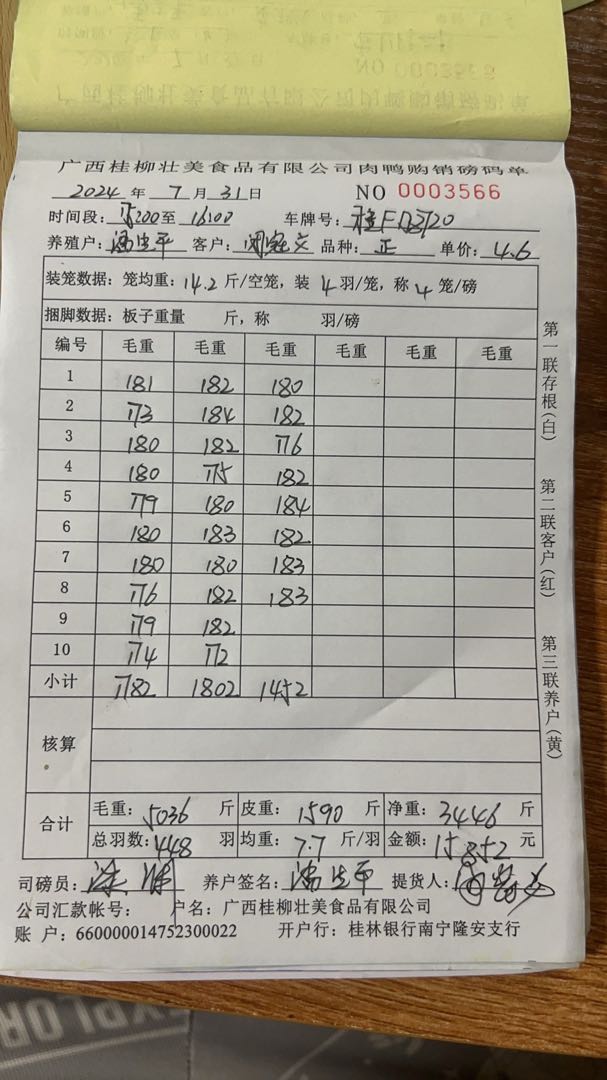 NO 0003566
广西桂柳壮美食品有限公司肉鸭购销磅码单
2024 年 7 月 31 日 NO 0003566
时间段: 15:00 至 16:00 车牌号:
养殖户: 潘生平 客户: 品种: 正 单价: 4.6
装笼数据: 笼均重: 14.2 斤/空笼, 装 4 羽/笼, 称 4 笼/磅
捆脚数据: 板子重量 斤, 称 羽/磅
编号 毛重 毛重 毛重 毛重 毛重 毛重
1 181 182 180
2 173 184 182
3 180 182 176
4 180 175 182
5 179 180 184
6 180 183 182
7 180 180 183
8 176 182 183
9 179 182
10 174 172
小计 1782 1802 1452
核算
合计 毛重: 5036 斤 皮重: 1590 斤 净重: 3446 斤
总羽数: 448 羽 均重: 7.7 斤/羽 金额: 15852 元
司磅员: 养户签名: 潘生平 提货人:
公司汇款帐号: 户名: 广西桂柳壮美食品有限公司
账 户: 660000014752300022 开户行: 桂林银行南宁隆安支行
第一联存根(白)
第二联客户(红)
第三联养户(黄)
EXPLOR